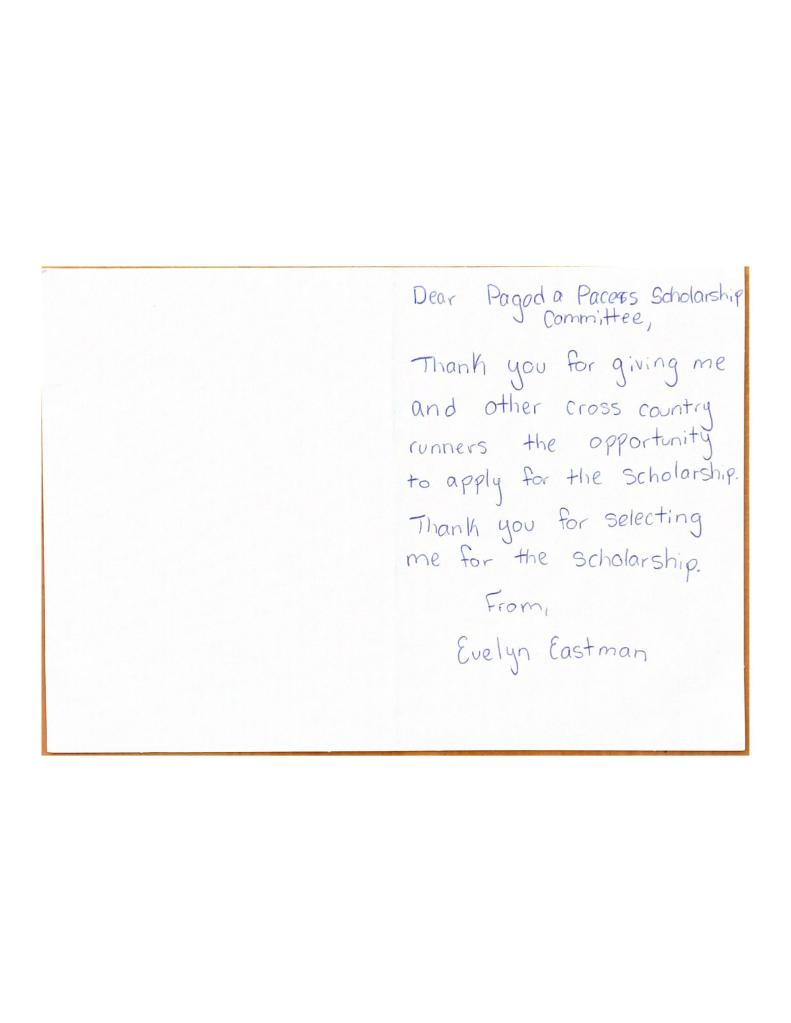 Dear Pagoda Pacers Scholarship
Committee,
Thank you for giving me
and other cross country
runners the opportunity
to apply for the scholarship.
Thank you for selecting
me for the scholarship.
From,
Evelyn Eastman